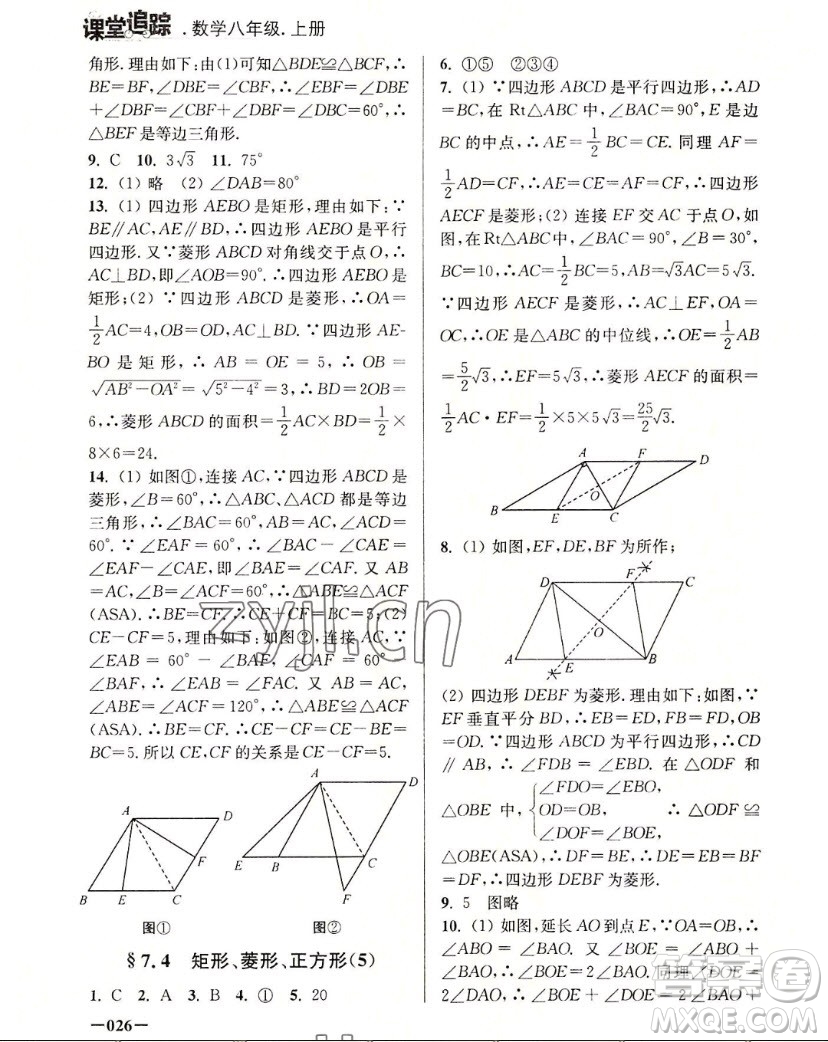 课堂追踪.数学八年级.上册
角形.理由如下:由(1)可知△BDE≌△BCF,∴
BE=BF,∠DBE=∠CBF,∴∠EBF=∠DBE
+∠DBF=∠CBF+∠DBF=∠DBC=60°,∴
△BEF是等边三角形.
9. C 10. 3√3 11. 75°
12. (1) 略 (2) ∠DAB=80°
13. (1) 四边形 AEBO 是矩形,理由如下:∵
BE∥AC,AE∥BD,∴四边形 AEBO 是平行
四边形.又∵菱形 ABCD 对角线交于点 O,∴
AC⊥BD,即∠AOB=90°.∴四边形 AEBO 是
矩形;(2) ∵四边形 ABCD 是菱形,∴OA=
1/2AC=4,OB=OD,AC⊥BD.∵四边形 AE-
BO 是矩形,∴AB=OE=5,∴OB=
√(AB²-OA²)=√(5²-4²)=3,∴BD=2OB=
6,∴菱形 ABCD 的面积=1/2AC×BD=1/2×
8×6=24.
14. (1) 如图①,连接 AC,∵四边形 ABCD 是
菱形,∠B=60°,∴△ABC、△ACD 都是等边
三角形,∴∠BAC=60°,AB=AC,∠ACD=
60°.∵∠EAF=60°,∴∠BAC-∠CAE=
∠EAF-∠CAE,即∠BAE=∠CAF.又
∵∠B=∠ACF=60°,∴△ABE≌△ACF
(ASA).∴BE=CF.∴CE+CF=BC=5;(2)
CE-CF=5,理由如下:如图②,连接AC,∵
∠EAB=60°-∠BAF,∠CAF=60°-
∠BAF,∴∠EAB=∠FAC.又∵AB=AC,
∠ABE=∠ACF=120°,∴△ABE≌△ACF
(ASA).∴BE=CF.∴CE-CF=CE-BE=
BC=5.所以 CE,CF 的关系是 CE-CF=5.
A D F B E C
图①
A D E B C F
图②
§7.4 矩形、菱形、正方形(5)
1. C 2. A 3. B 4. ① 5. 20
—026—
6. ①⑤ ②③④
7. (1) ∵四边形 ABCD 是平行四边形,∴AD
=BC,在 Rt△ABC 中,∠BAC=90°,E 是边
BC 的中点,∴AE=1/2BC=CE.同理 AF=
1/2AD=CF,∴AE=CE=AF=CF,∴四边形
AECF 是菱形;(2) 连接 EF 交 AC 于点 O,如
图,在 Rt△ABC 中,∠BAC=90°,∠B=30°,
BC=10,∴AC=1/2BC=5,AB=√3AC=5√3.
∵四边形 AECF 是菱形,∴AC⊥EF,OA=
OC,∴OE 是△ABC 的中位线,∴OE=1/2AB
=5/2√3,∴EF=5√3,∴菱形 AECF 的面积=
1/2AC·EF=1/2×5×5√3=25/2√3.
A F D O B E C
8. (1) 如图,EF,DE,BF 为所作;
D F C O A E B
(2) 四边形 DEBF 为菱形.理由如下:如图,∵
EF 垂直平分 BD,∴EB=ED,FB=FD,OB
=OD.∵四边形 ABCD 为平行四边形,∴CD
∥AB,∴∠FDB=∠EBD.在△ODF 和
△OBE 中,{∠FDO=∠EBO, OD=OB, ∠DOF=∠BOE, ∴△ODF≌
△OBE(ASA),∴DF=BE,∴DE=EB=BF
=DF,∴四边形 DEBF 为菱形.
9. 5 图略
10. (1) 如图,延长 AO到点 E,∵OA=OB,∴
∠ABO=∠BAO.又∠BOE=∠ABO+
∠BAO,∴∠BOE=2∠BAO.同理∠DOE=
2∠DAO,∴∠BOE+∠DOE=2∠BAO+
zyjl.cn